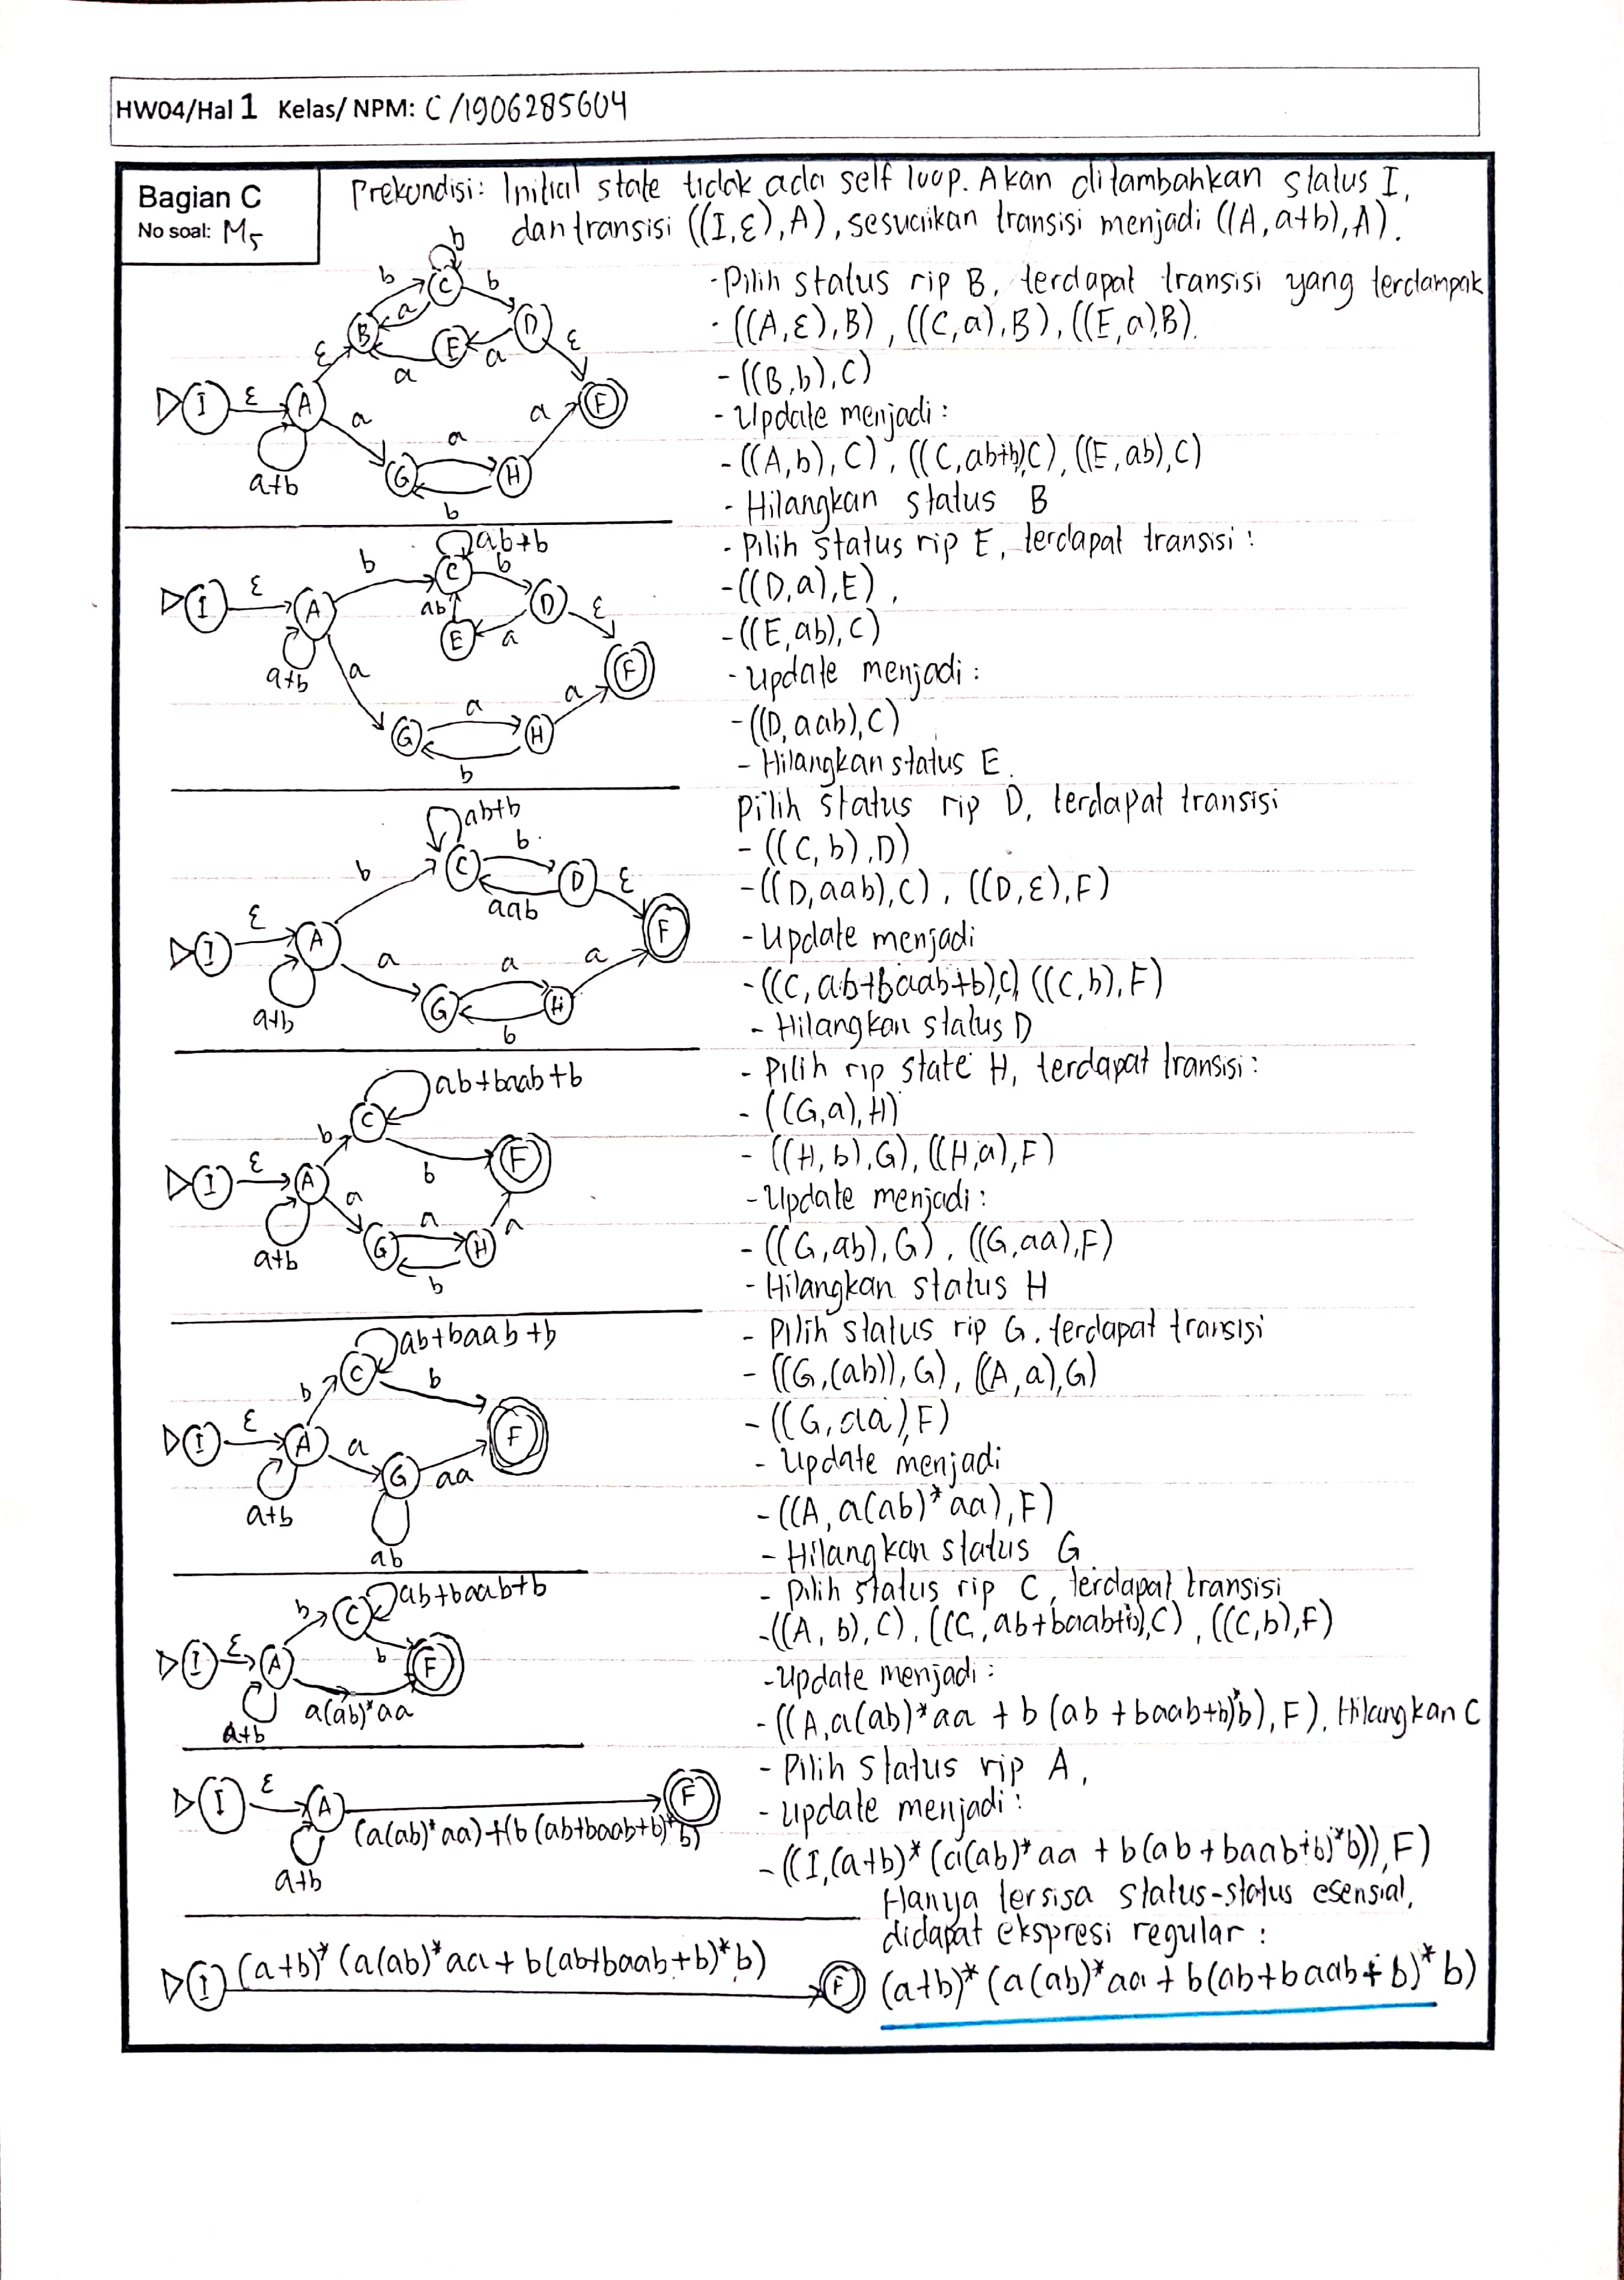 HW04/Hal 1 Kelas/ NPM: C /1906285604
Bagian C
No soal: M5
Prekondisi: Initial state tidak ada self loop. Akan ditambahkan status I,
dan transisi ((I,ε),A), sesuaikan transisi menjadi ((A, a+b), A).
b
b C b
a
B E D
ε a a ε
I ε A a a F
a
a+b G H
b
- Pilih status rip B, terdapat transisi yang terdampak
- ((A,ε),B), ((C,a),B), ((E,a),B).
- ((B,b),C)
- Update menjadi:
- ((A,b),C), ((C,ab+b),C), ((E,ab),C)
- Hilangkan status B
ab+b
b C b
I ε A ab D ε
E a
a+b a F
a a
G H
b
- Pilih status rip E, terdapat transisi:
- ((D,a),E),
- ((E,ab),C)
- Update menjadi:
- ((D,aab),C)
- Hilangkan status E.
ab+b
b C b D ε
aab
I ε A F
a a a
a+b G H
b
Pilih status rip D, terdapat transisi
- ((C,b),D)
- ((D,aab),C), ((D,ε),F)
- Update menjadi
- ((C,ab+baab+b),C), ((C,b),F)
- Hilangkan status D
ab+baab+b
b C
b F
I ε A a
a+b G a H a
b
- Pilih rip state H, terdapat transisi:
- ((G,a),H)
- ((H,b),G), ((H,a),F)
- Update menjadi:
- ((G,ab),G), ((G,aa),F)
- Hilangkan status H
ab+baab+b
b C b
I ε A a F
a+b G aa
ab
- Pilih status rip G, terdapat transisi
- ((G,(ab)),G), ((A,a),G)
- ((G,aa),F)
- Update menjadi
- ((A,a(ab)*aa),F)
- Hilangkan status G
ab+baab+b
b C
I ε A b F
a+b a(ab)*aa
- Pilih status rip C, terdapat transisi
- ((A,b),C), ((C,ab+baab+b),C), ((C,b),F)
- Update menjadi:
- ((A,a(ab)*aa + b(ab+baab+b)*b),F), Hilangkan C
I ε A F
(a(ab)*aa)+(b(ab+baab+b)*b)
a+b
- Pilih status rip A,
- Update menjadi:
- ((I,(a+b)*(a(ab)*aa + b(ab+baab+b)*b)),F)
Hanya tersisa status-status esensial,
didapat ekspresi regular:
I (a+b)*(a(ab)*aa + b(ab+baab+b)*b) F
(a+b)*(a(ab)*aa + b(ab+baab+b)*b)